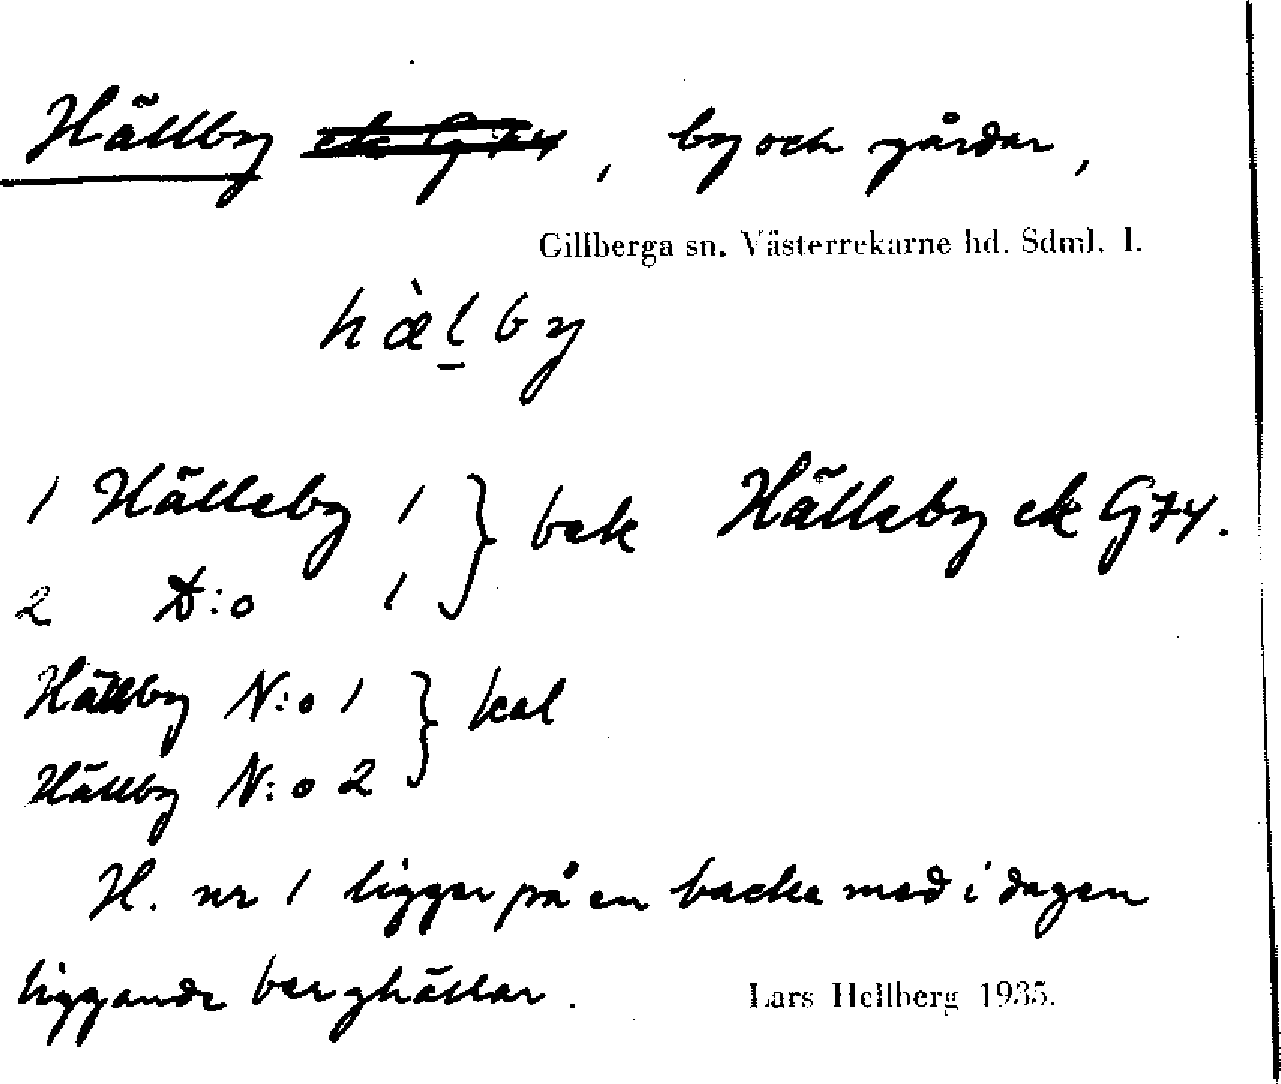 Hällby ek G 74, by och gårdar,
Gillberga sn. Västerrekarne hd. Sdml. l.
hæ̀l̠by
1 Hälleby 1 } bek Hälleby ek G74.
2 D:o 1
Hällby N:o 1 } kal
Hällby N:o 2
H. nr 1 ligger på en backe med i dagen
liggande berghällar. Lars Hellberg 1935.